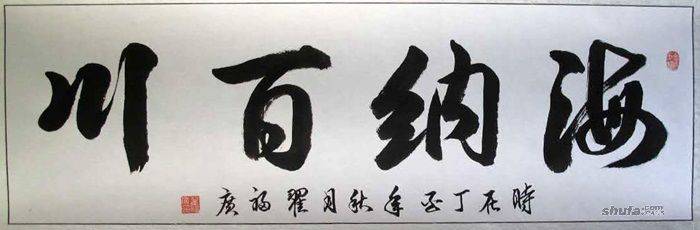 海纳百川
時在丁亥年秋月翟福廣